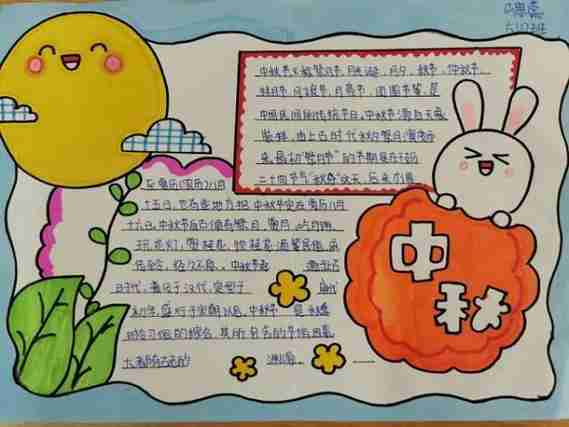 中秋节又称祭月节、月光诞、月夕、秋节、仲秋节、
拜月节、月娘节、月亮节、团圆节等,是
中国民间的传统节日。中秋节源自天象
崇拜,由上古时代秋夕祭月演变而
来。最初“祭月节”的节期是在干支
二十四节气“秋分”这天,后来才调
至夏历(农历)八月
十五日,也有些地方将中秋节定在夏历八月
十六日。中秋节自古便有祭月、赏月、吃月饼、
玩花灯、
传至今,经久不息。中秋节
时代,普及于汉代,定型于
初年,盛行于宋朝以后。中秋节
时令习俗的综合,其所包含的节俗因素,
大都有古老的
渊源。
中
秋